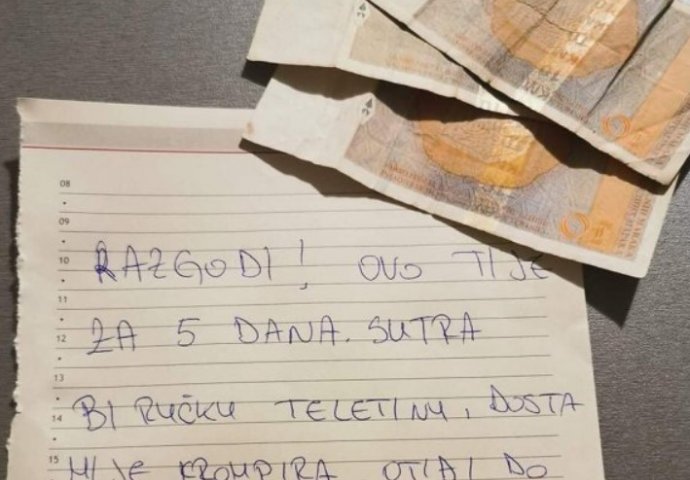 08
09
10
RAZGODI! OVO TI JE
11
12
ZA 5 DANA. SUTRA
13
14
BI RUČKU TELETINU, DOSTA
15
MI JE KROMPIRA OTIĐI DO